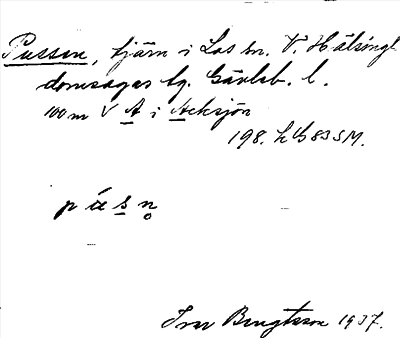 Pussen, tjärn i Los sn. V. Hälsingl.
domsagas tg. Gävleb. l.
100 m V A i Acksjön
198. L G 83 SM.
p ú s n̥
Ivar Bengtsson 1937.